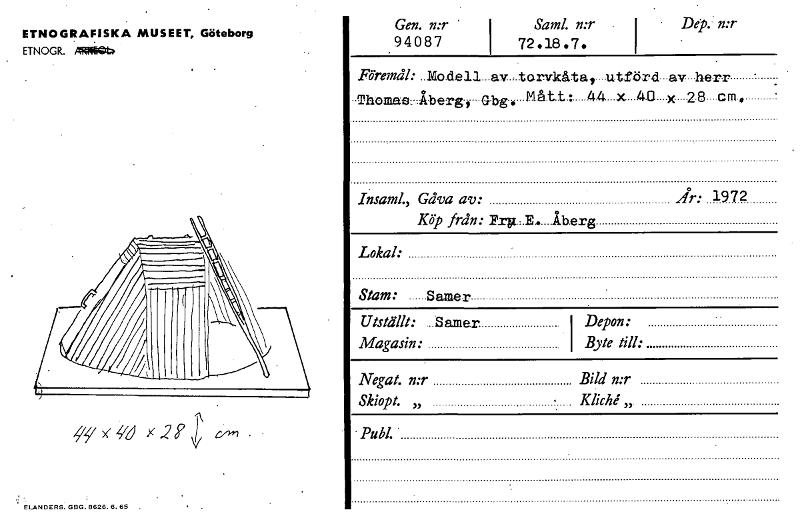 ETNOGRAFISKA MUSEET, Göteborg
ETNOGR.
44 x 40 x 28 cm.
ELANDERS. GBG. 8626. 6. 65
Gen. n:r Saml. n:r Dep. n:r
94087 72.18.7.
Föremål: Modell av torvkåta, utförd av herr
Thomas Åberg, Gbg. Mått: 44 x 40 x 28 cm.
Insaml., Gåva av: År: 1972
Köp från: Fru E. Åberg
Lokal:
Stam: Samer
Utställt: Samer Depon:
Magasin: Byte till:
Negat. n:r Bild n:r
Skiopt. „ Kliché „
Publ.